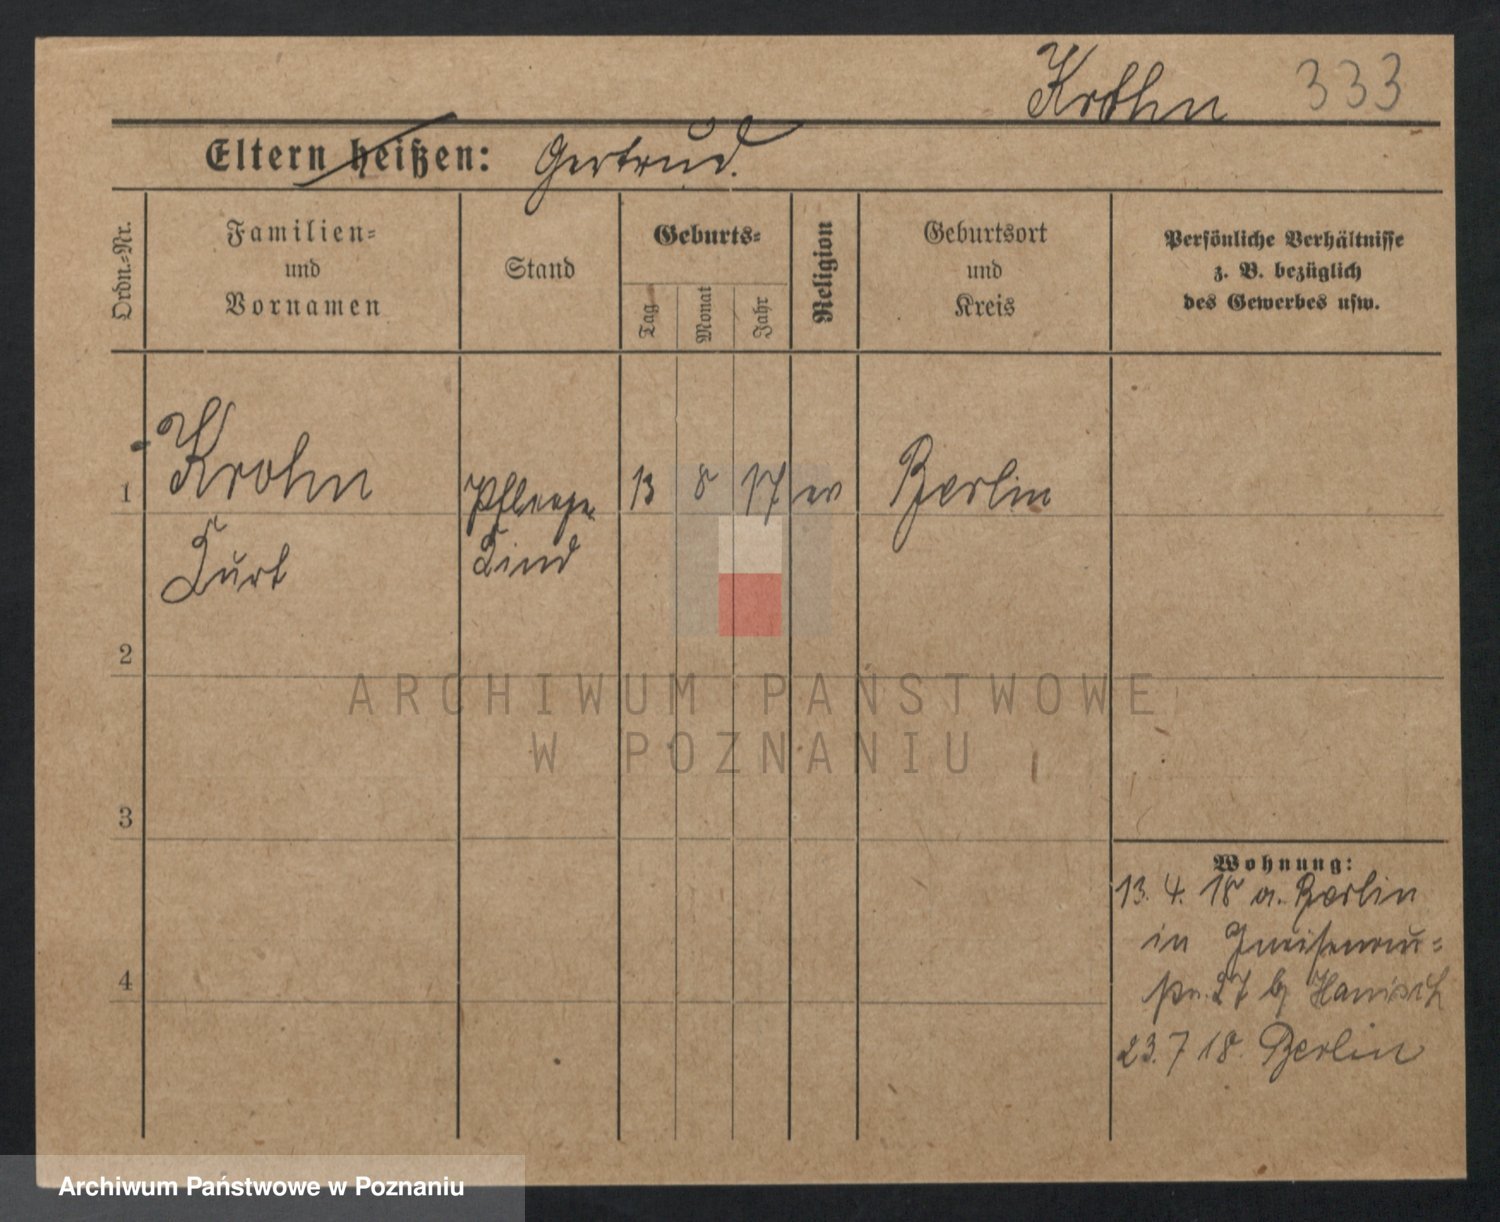 Krohn 333
Eltern heißen: Gertrud.
Ordn.-Nr.
Familien-
und
Vornamen
Stand
Geburts-
Tag
Monat
Jahr
Religion
Geburtsort
und
Kreis
Persönliche Verhältnisse
z. B. bezüglich
des Gewerbes usw.
1 Krohn Pflege 13 8 17 ev Berlin
Kurt Kind
2
3
4
Wohnung:
13. 4. 18 a. Berlin
in Gneisenau-
str. 27 b/ Hanisch
23. 7 18. Berlin
ARCHIWUM PAŃSTWOWE
W POZNANIU
Archiwum Państwowe w Poznaniu